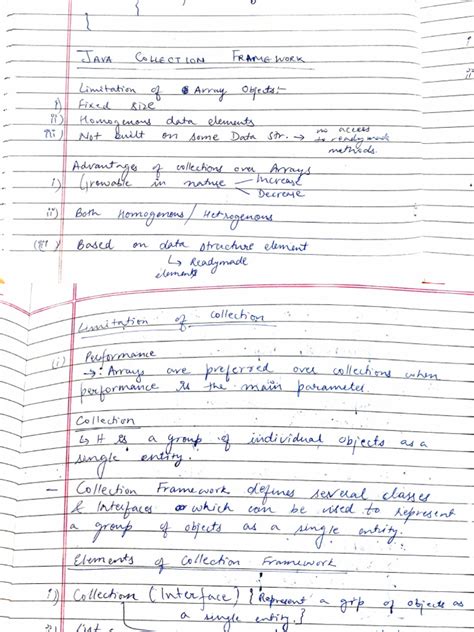 }
JAVA COLLECTION FRAMEWORK
Limitation of Array Objects:-
i) Fixed size
ii) Homogenous data elements
iii) Not built on some Data str. → no access
to readymade
methods.
Advantages of collections over Arrays
i) Growable in nature Increase
Decrease
ii) Both Homogenous / Hetrogenous
(iii) Based on data structure element
↳ Readymade
elements
Limitation of collection
(i) Performance
→: Arrays are preferred over collections when
performance is the main parameter.
Collection
↳ It is a group of individual objects as a
single entity.
- Collection Framework defines several classes
& Interfaces which can be used to represent
a group of objects as a single entity.
Elements of Collection Framework
i) Collection (Interface) { Represent a grp of objects as
a single entity. }